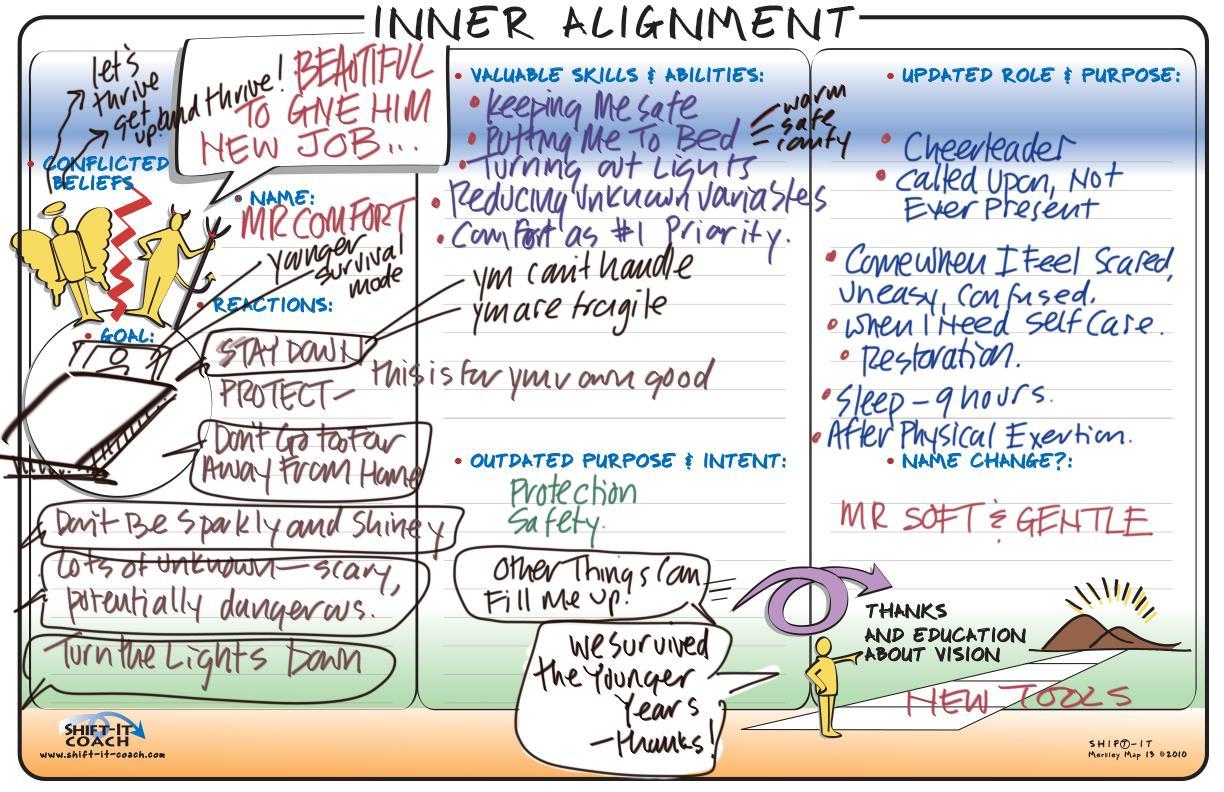 INNER ALIGNMENT
let's
thrive
get
up!
and thrive!
BEAUTIFUL
TO GIVE HIM
NEW JOB...
• CONFLICTED
BELIEFS
• NAME:
MR COMFORT
younger
survival
mode
• REACTIONS:
• GOAL:
STAY DOWN
you can't handle
you are fragile
PROTECT - this is for your own good
Don't Go too Far
Away From Home
Don't Be Sparkly and Shiney
Lots of unknown - scary,
potentially dangerous.
Turn the Lights Down
• VALUABLE SKILLS & ABILITIES:
• Keeping Me safe
• Putting Me To Bed
warm
safe
comfy
• Turning out Lights
• Reducing Unknown Variables
• Comfort as #1 Priority.
• OUTDATED PURPOSE & INTENT:
Protection
Safety.
Other Things Can
Fill Me up!
We survived
the Younger
Years
-thanks!
• UPDATED ROLE & PURPOSE:
• Cheerleader
• Called Upon, Not
Ever Present
• Come when I Feel Scared,
Uneasy, Confused.
• When I Need Self Care.
• Restoration.
• Sleep - 9 hours.
• After Physical Exertion.
• NAME CHANGE?:
MR SOFT & GENTLE
THANKS
AND EDUCATION
ABOUT VISION
NEW TOOLS
SHIFT-IT
COACH
www.shift-it-coach.com
SHIFT-IT
Merkley Map 13 ©2010